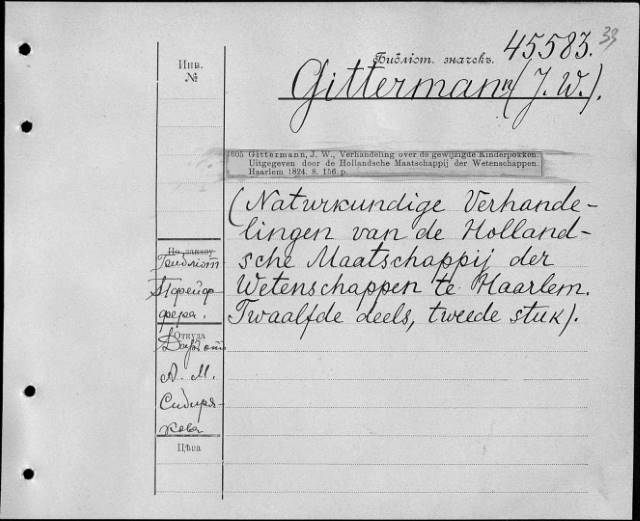 45583.
33
Библіот. значекъ.
Gittermann (J. W.).
Инв.
№
1605 Gittermann, J. W., Verhandeling over de gewijzigde Kinderpokken.
Uitgegeven door de Hollandsche Maatschappij der Wetenschappen.
Haarlem 1824. 8. 156 p.
(Naturkundige Verhande-
lingen van de Holland-
sche Maatschappij der
Wetenschappen te Haarlem.
Twaalfde deels, tweede stuk).
По заказу
Пфейф-
фера.
Откуда
Даръ отъ
А. М.
Сибиря-
кова
Цѣна